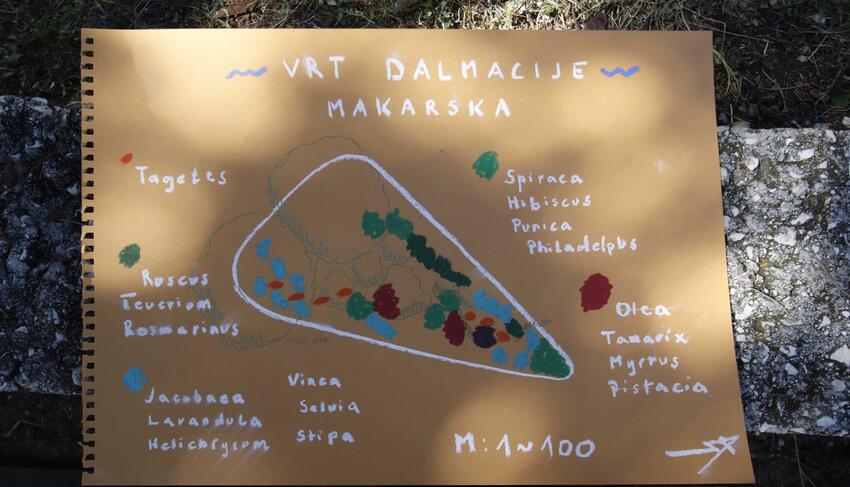 VRT DALMACIJE
MAKARSKA
Tagetes
Ruscus
Teucrium
Rosmarinus
Jacobaea
Lavandula
Helichrysum
Vinca
Salvia
Stipa
Spiraea
Hibiscus
Punica
Philadelpus
Olea
Tamarix
Myrtus
Pistacia
M:1~100